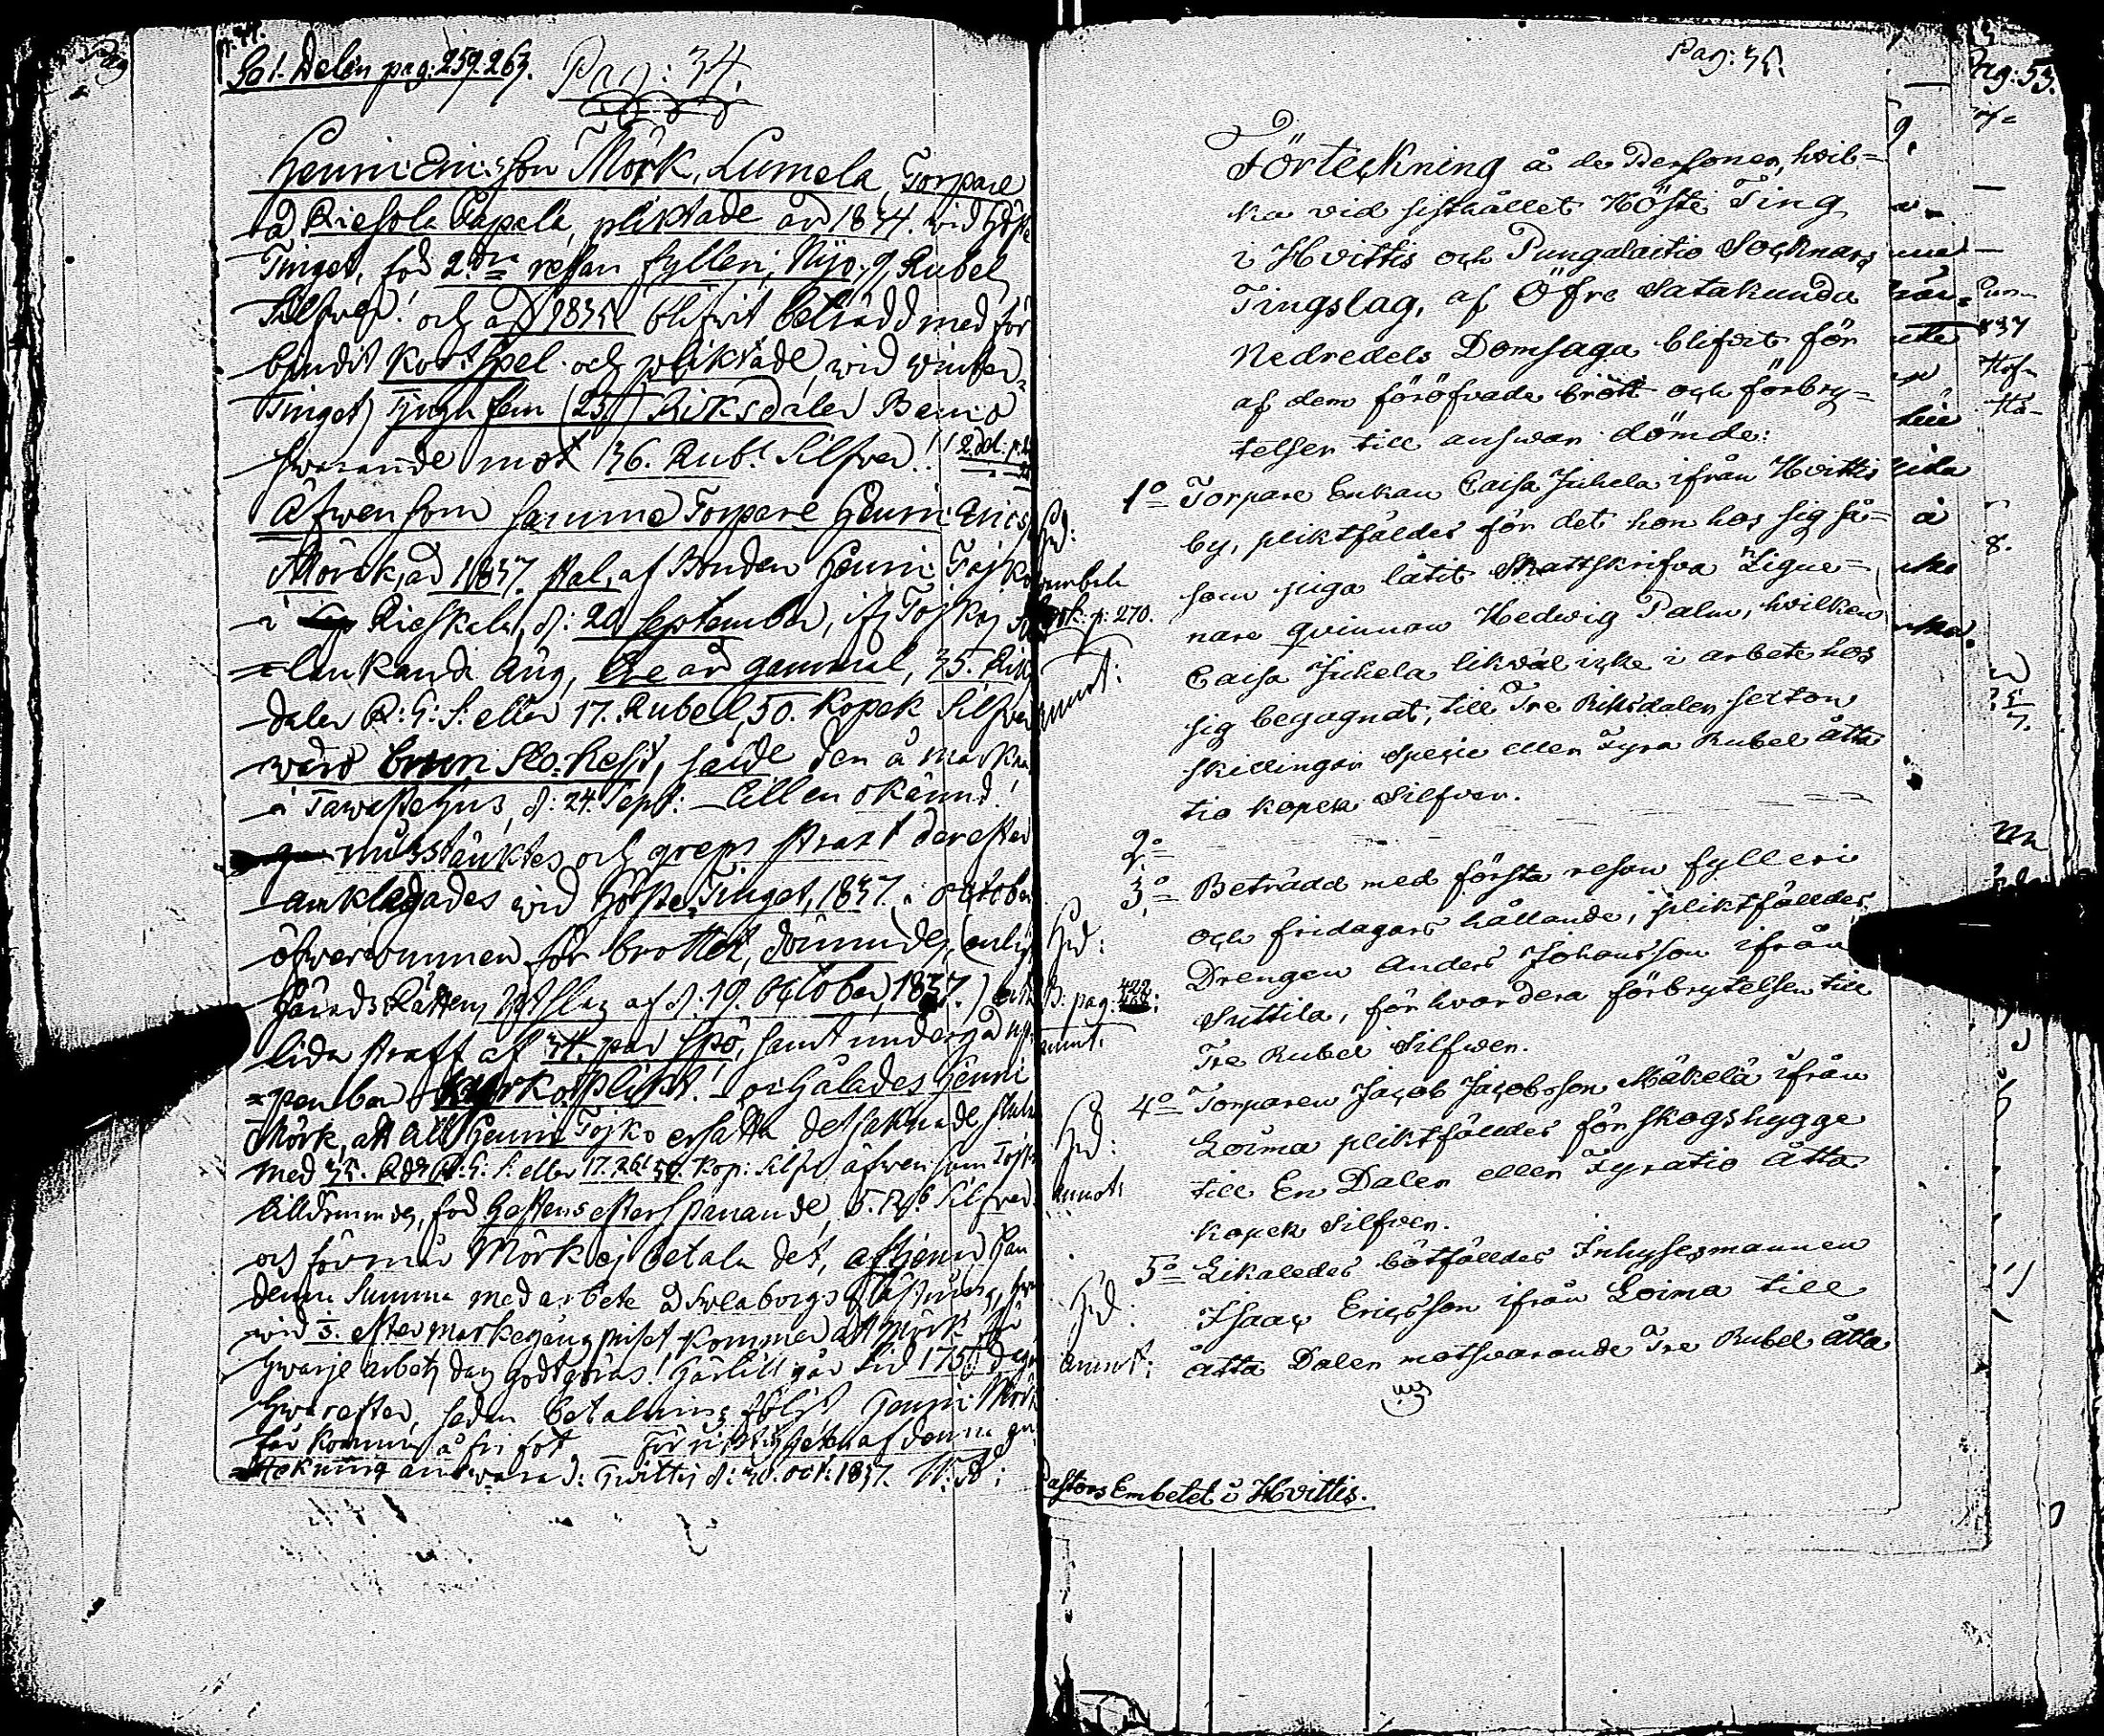 So! Delen pag: 259. 263. Pag: 34.
Henric Erics:son Mörk, Lumela, Torpare
å Rieskola Capela, pliktade år 1834. wid Höste
Tinget, för 2dra resan fylleri, Nijo, 9, Rubel
Silfwer! och år 1835 blifwit beträdd med för
budit Kort Spel och pliktade wid winter
Tinget) Tjugu fem (25) Riksdaler Banco
swarande mot 36. Rub! Silfver!!
Äfwensom samma Torpare Henric Erics
Mörck, år 1837. stal, af Bonden Henric Tojko
i Rieskala, d: 20 September, if Tojkos
Äng, Tre år gammal, 35. Riks
daler R: G: S: eller 17. Rubel, 50. Kopek Silfver
wärd brun Sto-häst, sålde den å markna
i Tawastehus, d: 24. Sept: till en okänd!
misstänktes och greps strax t derefter
anklagades wid Höste Tinget, 1837. i October
öfwerwunnen för brottet, dömmdes, (enligt
Härads Rättens Utslag af d: 19. October, 1837.) att
lida straff af 34. par Spö, samt undergå up
penbar Kyrkoplikt! – och ålades Henric
Mörk, att till Henric Tojko ersätta det saknade stulna
med 35. Rdr R: G: S: eller 17. Rbl 50. Kop: Silfv äfwen som Tojko
tilldömmdes, för Hästens efterspanande, 5. Rub. Silfver
och förmår Mörk ej betala det, aftjenar han
denna Summa med arbete å Sweaborgs Fästning, hwar
wid 3. efter markegång priset kommer att Mörk för
hwarje arbets dag godtgöras! Härtill går tid 175. Dagar
Hwarefter, sedan betalning följt Henric Mörk
får komma å fri fot För riktigheten af denna an
tekning answarar: Hwittis d: 30. Oct: 1837.
Pag: 35.
Förteckning å de Personer, hvil=
ka vid sisthållet Höste Ting
i Hvittis och Pungalaitio Socknars
Tingslag, af Öfre Satakunda
Nedredels Domsaga blifvit för
af dem föröfvade brott och förbry=
telser till answar dömde:
1o Torpare Enkan Caisa Juhela ifrån Hvittis
by, pliktfäldes för det hon hos sig så=
som piga låtit Skattskrifva Zigue=
nare qvinnan Hedwig Palm, hvilken
Caisa Juhela likväl icke i arbete hos
sig begagnat, till Tre Riksdaler sexton
skillingar Specie eller Fyra Rubel åttio
tio kopek Silfver.
2o
3o Beträdd med första resan fylleri
och fridagars hållande, pliktfälldes
Drengen Anders Johansson ifrån
Suttila, för hvardera förbrytelsen till
Tre Rubel Silfwer.
4o Torparen Jacob Jacobsson Mäkelä ifrån
Loima pliktfälldes för skogshygge
till En Daler eller Fyratio åtta
kopek Silfwer.
5o Likaledes bötfälldes Inhysesmannen
Isaac Ericsson ifrån Loima till
åtta Daler motsvarande Tre Rubel åtta
Pastors Embetet i Hvittis.
p: 270.
B: pag: 422
annot:
Pag: 53.